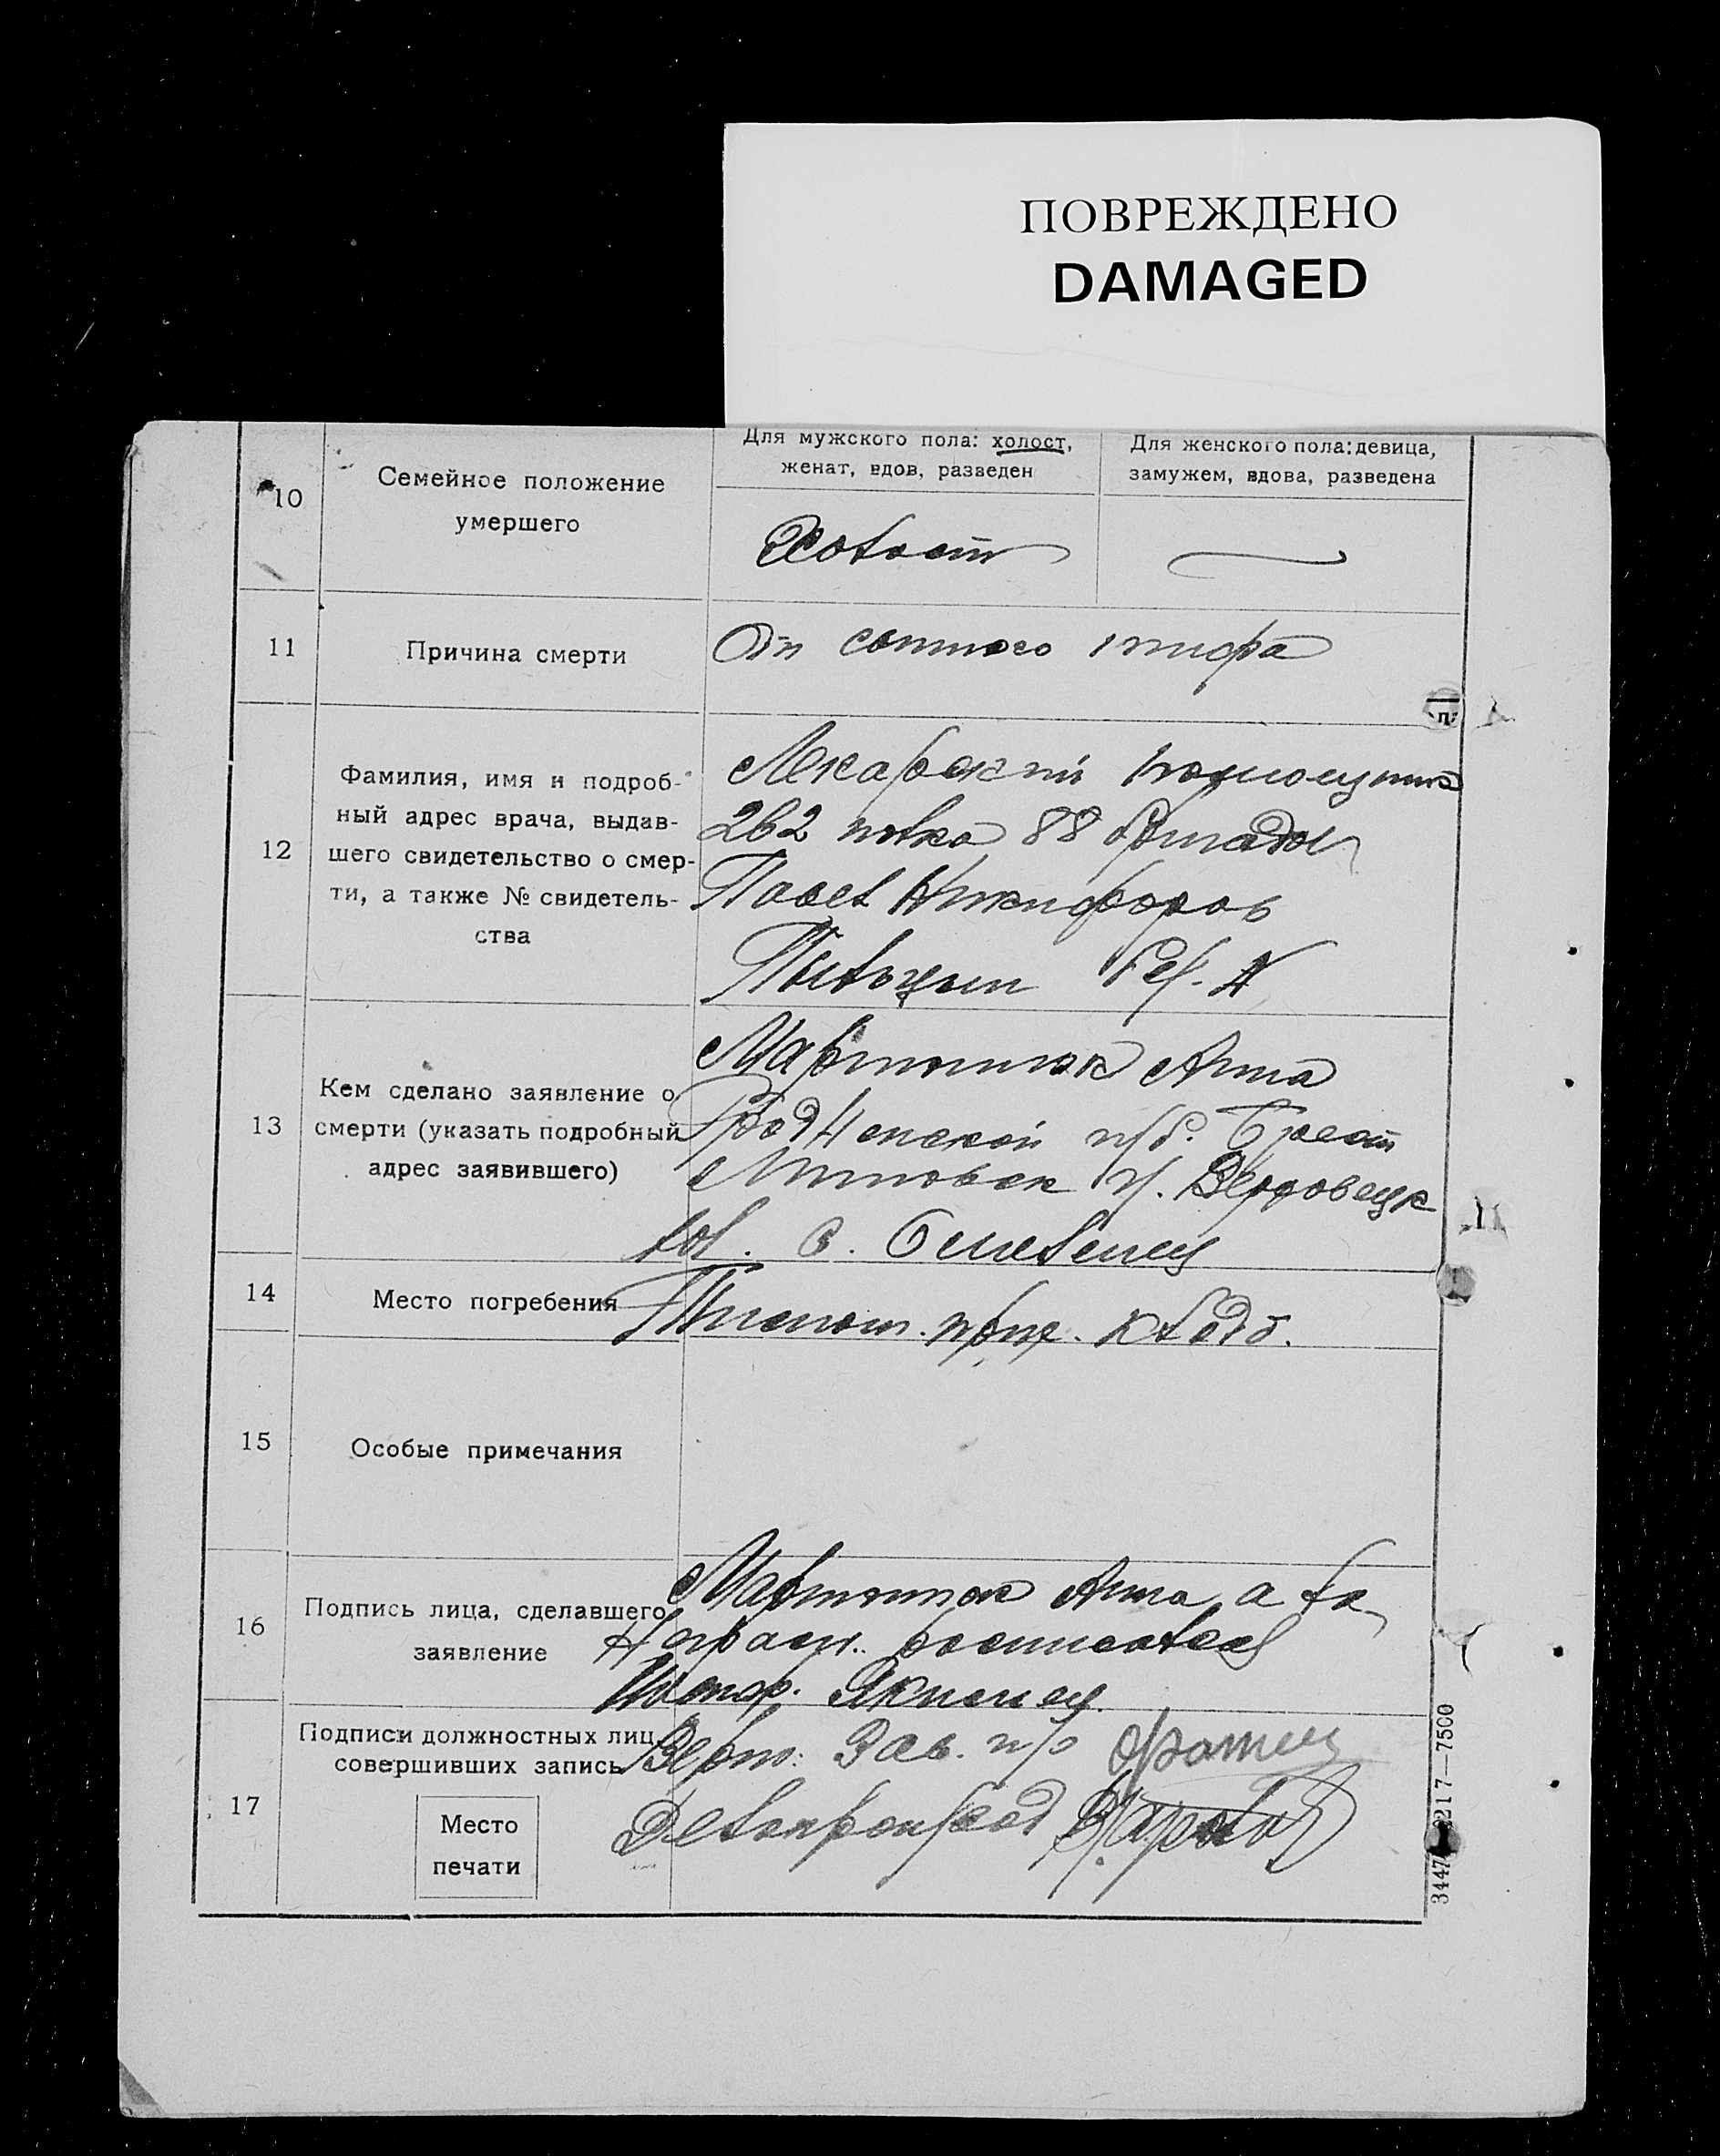 ПОВРЕЖДЕНО
DAMAGED
Для мужского пола: холост,
женат, вдов, разведен
Для женского пола: девица,
замужем, вдова, разведена
10
Семейное положение
умершего
Холост
11
Причина смерти
От сыпного тифа
12
Фамилия, имя и подроб-
ный адрес врача, выдав-
шего свидетельство о смер-
ти, а также № свидетель-
ства
Лекарский помощник
262 полка 88 бригады
Павел Никифоров
13
Кем сделано заявление о
смерти (указать подробный
адрес заявившего)
Мартынюк Анна
Гродненской губ. Брест
Литовск у.
вол. с.
14
Место погребения
кладб.
15
Особые примечания
16
Подпись лица, сделавшего
заявление
Мартынюк Анна а за
неграм. росписался
17
Подписи должностных лиц,
совершивших запись
Место
печати
Верно: Зав. п/о
Делопроизвод
217—7500